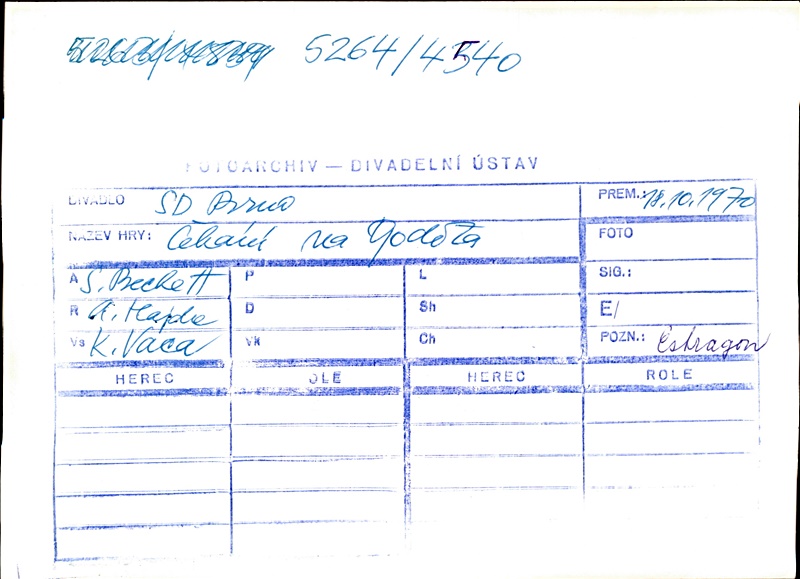 5264/4540
FOTOARCHIV — DIVADELNÍ ÚSTAV
DIVADLO SD Brno PREM.: 18.10.1970
NÁZEV HRY: Čekání na Godota FOTO
A S. Beckett P L SIG.:
R A. Hajda D Sh E/
Vs K. Vaca Vk Ch POZN.: Estragon
HEREC ROLE HEREC ROLE